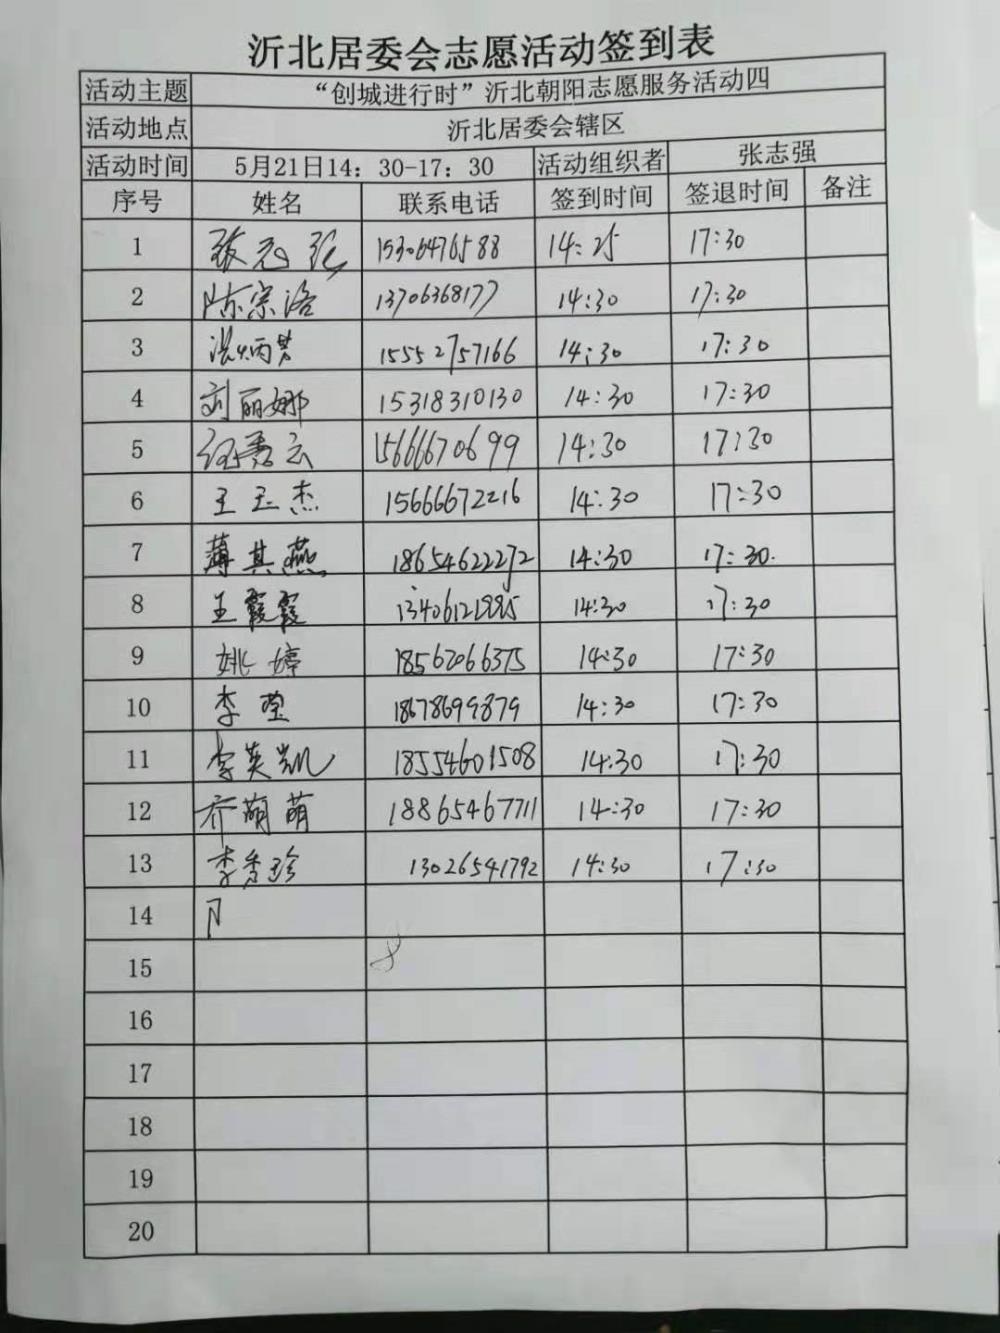 沂北居委会志愿活动签到表
活动主题 “创城进行时”沂北朝阳志愿服务活动四
活动地点 沂北居委会辖区
活动时间 5月21日14：30-17：30 活动组织者 张志强
序号 姓名 联系电话 签到时间 签退时间 备注
1 15306476588 14:25 17:30
2 陈宗洛 13706368177 14:30 17:30
3 15552757166 14:30 17:30
4 刘丽娜 15318310130 14:30 17:30
5 15666670699 14:30 17:30
6 王玉杰 15666672216 14:30 17:30
7 薄其燕 18654622272 14:30 17:30.
8 王霞霞 14:30 17:30
9 姚婷 18562066375 14:30 17:30
10 李莹 18678699879 14:30 17:30
11 李英凯 18554601508 14:30 17:30
12 乔萌萌 18865467711 14:30 17:30
13 李秀珍 13026541792 14:30 17:30
14
15
16
17
18
19
20